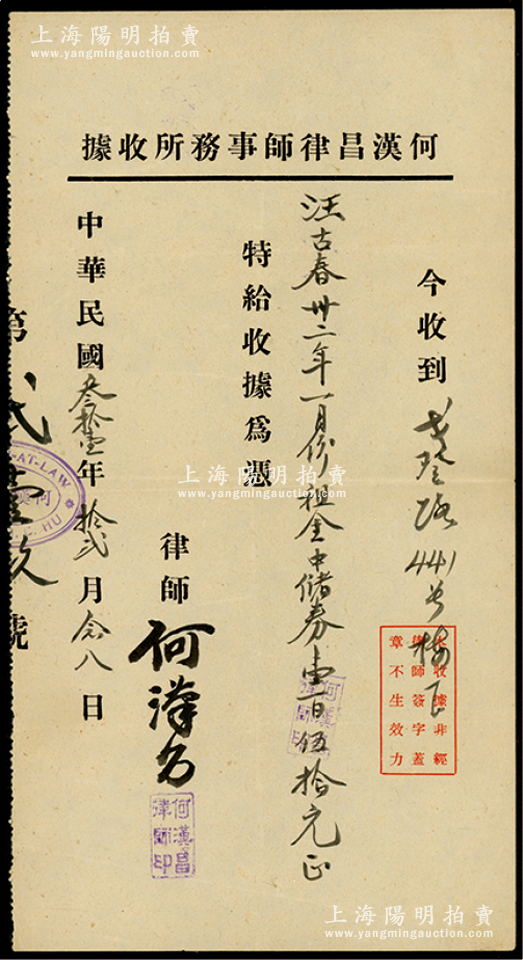 上海陽明拍賣
www.yangmingauction.com
何漢昌律師事務所收據
今收到 戈登路441号樓下
汪古春卅二年一月份租金中儲券壹百伍拾元正
特給收據爲憑
律師 何漢昌
何漢昌律師印
中華民國叁拾壹年拾弍月念八日
第弍壹玖號
AT-LAW
本收據非經
律師簽字蓋
章不生效力
何漢昌律師印
上海陽明拍賣
www.yangmingauction.com
上海陽明拍賣
www.yangmingauction.com